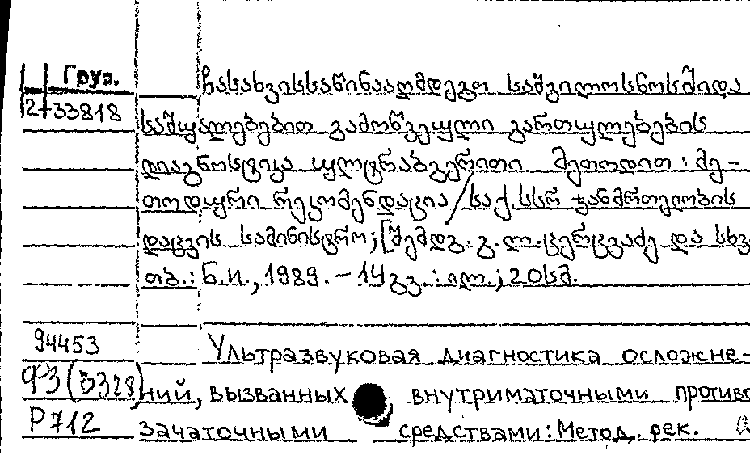 Груз.
2-33818
ჩასახვისსაწინააღმდეგო საშვილოსნოსშიდა
საშუალებებით გამოწვეული გართულებების
დიაგნოსტიკა ულტრაბგერითი მეთოდით: მე-
თოდური რეკომენდაცია / საქ. სსრ ჯანმრთელობის
დაცვის სამინისტრო; [შემდგ. გ. ლ. ცერცვაძე და სხვ
თბ.: б.и., 1989. - 14 გვ.: ილ.; 20 სმ.
94453
Ультразвуковая диагностика осложне-
ний, вызванных внутриматочными против
зачаточными средствами: Метод. рек.
Р712